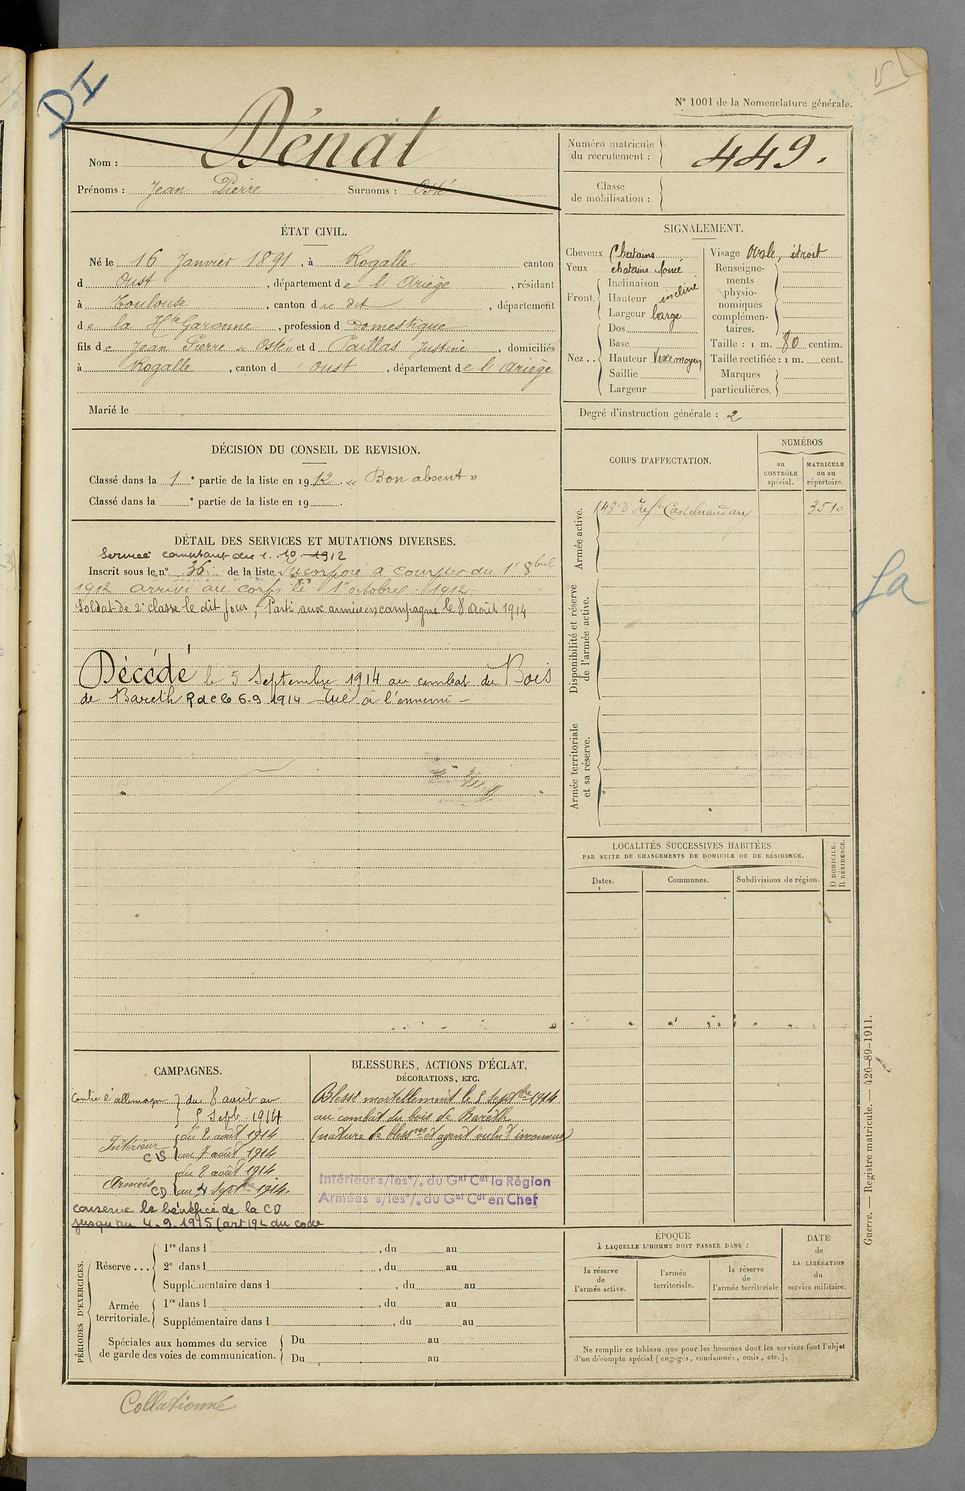 DI
N° 1001 de la Nomenclature générale.
Nom : Dénat
Prénoms : Jean Pierre Surnoms : Osté
Numéro matricule du recrutement : 449.
Classe de mobilisation :
ÉTAT CIVIL.
Né le 16 Janvier 1891, à Rogalle canton
d Oust, département de l'Ariège, résidant
à Toulouse, canton du dit, département
de la Hte Garonne, profession d Domestique
fils de Jean Pierre « Osté » et d Caillas Justine, domiciliés
à Rogalle, canton d'Oust, département de l'Ariège
Marié le
SIGNALEMENT.
Cheveux Chatains
Yeux chatains foncé
Front. Inclinaison incliné
Hauteur
Largeur large
Nez.. Dos
Base
Hauteur
Saillie
Largeur
Visage Ovale, étroit
Renseignements physionomiques complémentaires.
Taille : 1 m. 80 centim.
Taille rectifiée : 1 m. cent.
Marques particulières.
Degré d'instruction générale : 2
DÉCISION DU CONSEIL DE REVISION.
Classé dans la 1e partie de la liste en 1912. « Bon absent »
Classé dans la e partie de la liste en 19 .
DÉTAIL DES SERVICES ET MUTATIONS DIVERSES.
Service comptant du 1. 10. 1912
Inscrit sous le n° 36 de la liste Incorporé à compter du 1er 8bre
1912 arrivé au corps le 1er octobre 1912
Soldat de 2e classe le dit jour, Parti aux armées en campagne le 8 Août 1914
Décédé le 5 Septembre 1914 au combat du Bois
de Bareth 6-9 1914 Tué à l'ennemi -
CORPS D'AFFECTATION.
NUMÉROS
au CONTRÔLE spécial.
MATRICULE ou au répertoire.
Armée active.
143e d'Infie Castelnaudary 3510
Disponibilité et réserve de l'armée active.
Armée territoriale et sa réserve.
La
LOCALITÉS SUCCESSIVES HABITÉES
PAR SUITE DE CHANGEMENTS DE DOMICILE OU DE RÉSIDENCE.
Dates. Communes. Subdivisions de région. D DOMICILE, R RÉSIDENCE.
CAMPAGNES.
Contre l'allemagne du 8 août au
5 Septb. 1914
Intérieur CS du 2 août 1914
au 7 août 1914
Armées CD du 8 août 1914
au 4 Septbre 1914.
conserve le bénéfice de la CD
jusqu'au 4.9.1915 (art 194 du code
BLESSURES, ACTIONS D'ÉCLAT,
DÉCORATIONS, ETC.
Blessé mortellement le 5 Septbre 1914
au combat du bois de Bareth
(nature de blessres et agent vulnt inconnus)
Intérieur s/les °/. du Gal Cdt la Région
Armées s/les °/. du Gal Cdt en Chef
PÉRIODES D'EXERCICES.
Réserve... 1re dans l , du au
2e dans l , du au
Supplémentaire dans l , du au
Armée territoriale. 1re dans l , du au
Supplémentaire dans l , du au
Spéciales aux hommes du service de garde des voies de communication. Du au
Du au
ÉPOQUE
À LAQUELLE L'HOMME DOIT PASSER DANS :
la réserve de l'armée active. l'armée territoriale. la réserve de l'armée territoriale
DATE de LA LIBÉRATION du service militaire.
Ne remplir ce tableau que pour les hommes dont les services font l'objet
d'un décompte spécial (engagés, condamnés, omis, etc.).
Guerre. — Registre matricule. — 426-89-1911.
Collationné